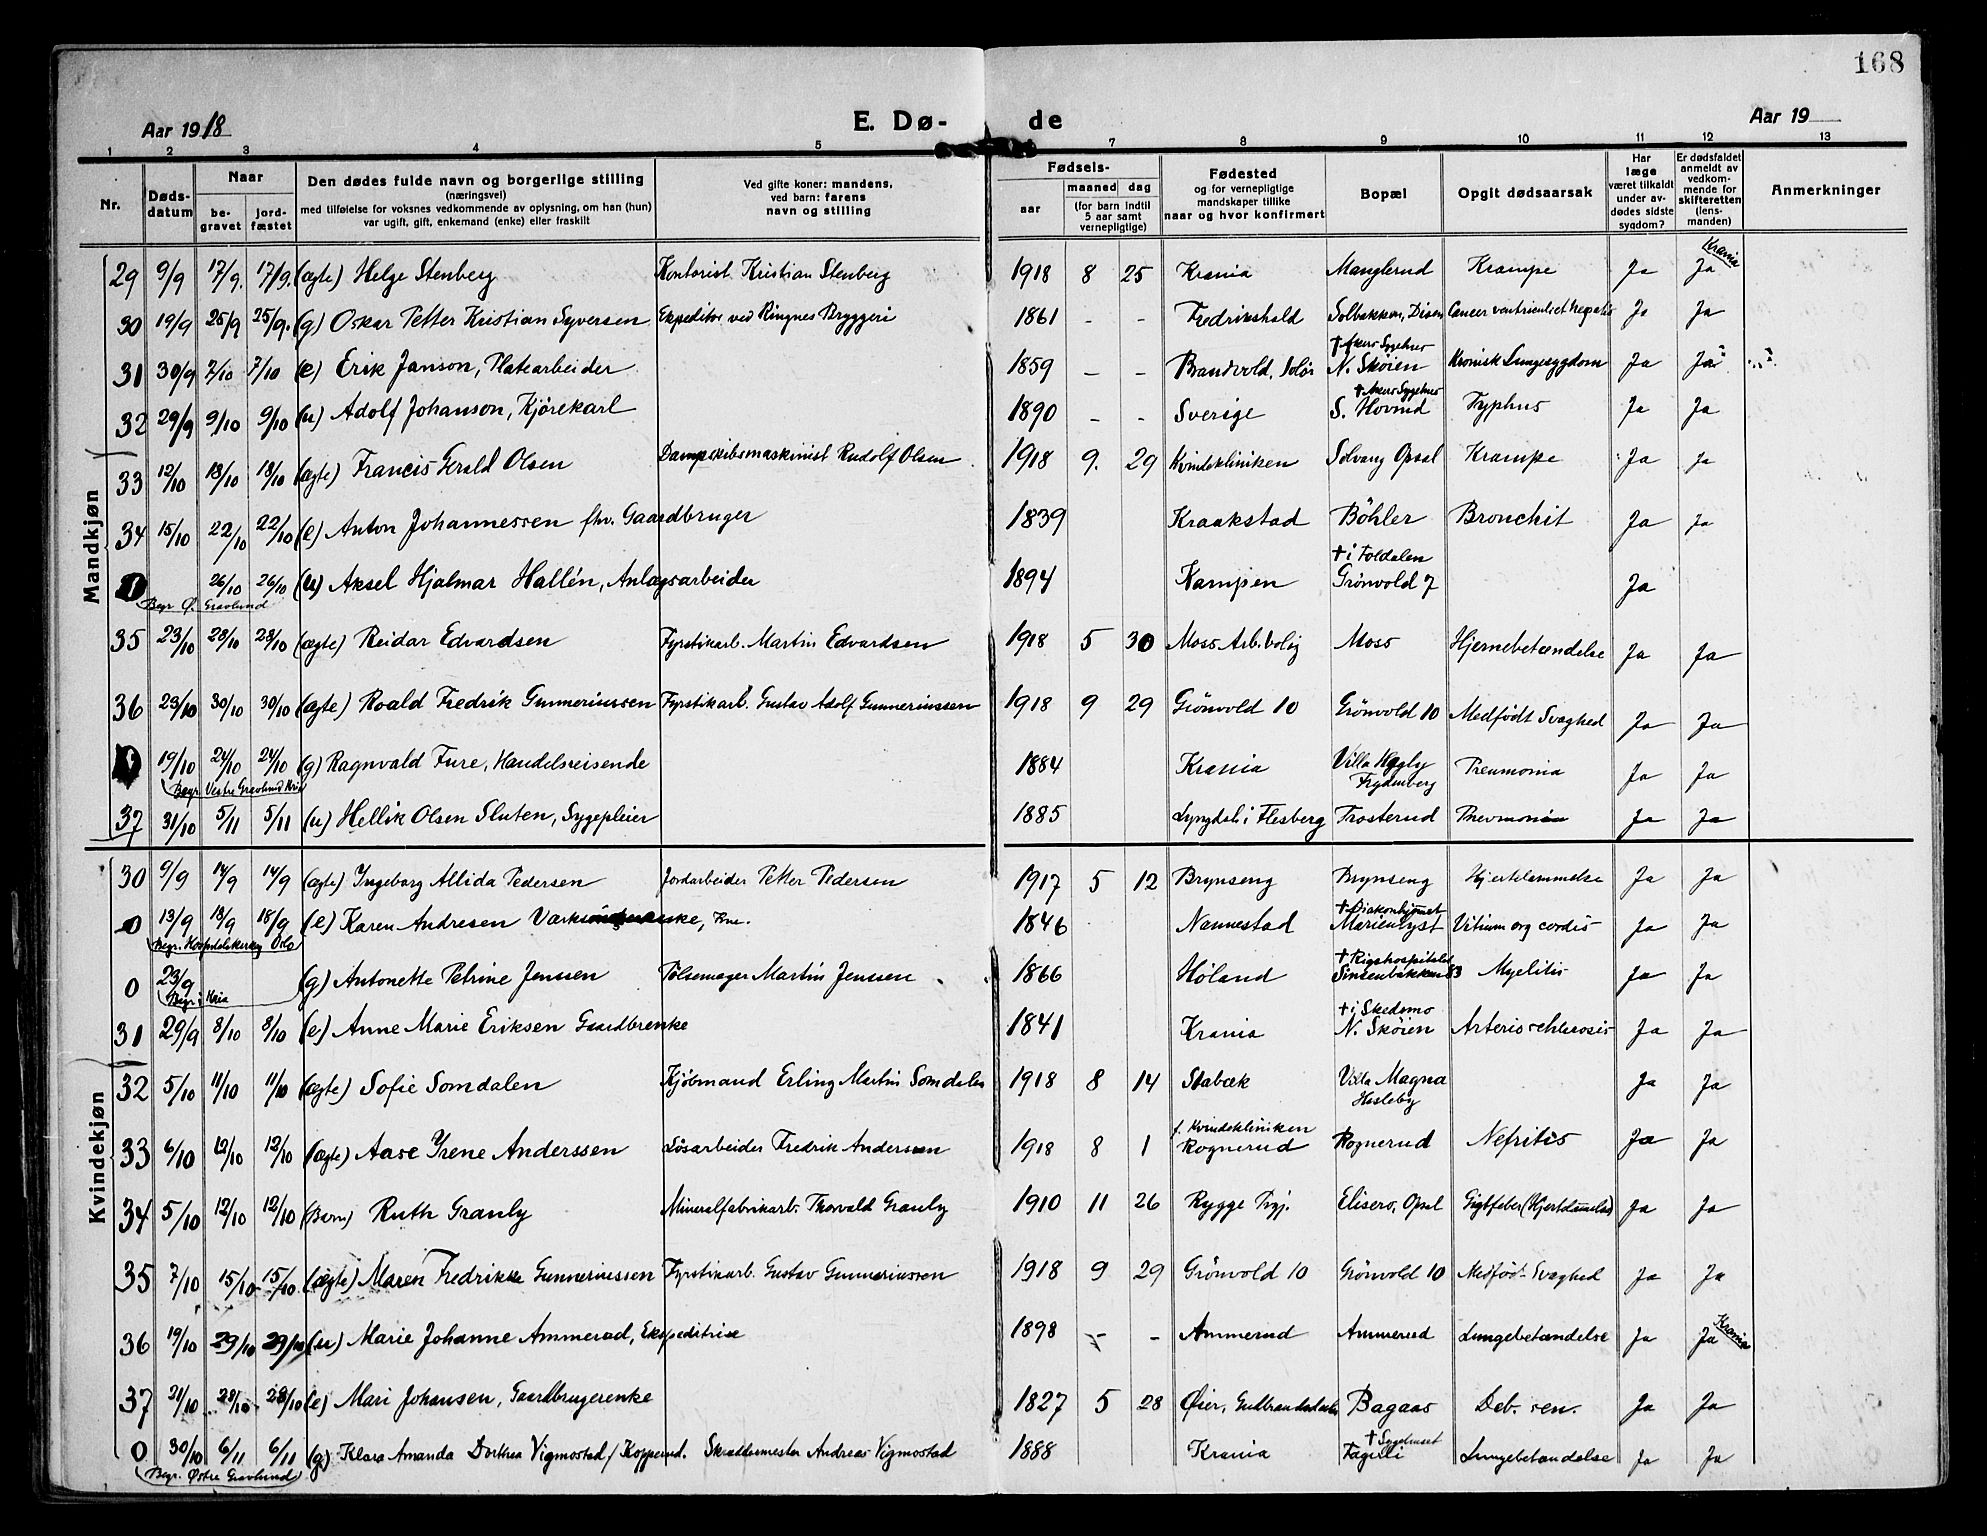 168
Aar 1918 E. Dø- de Aar 19
1 2 3 4 5 7 8 9 10 11 12 13
Nr. Døds-datum Naar be-gravet jord-fæstet Den dødes fulde navn og borgerlige stilling (næringsvei) med tilføielse for voksnes vedkommende av oplysning, om han (hun) var ugift, gift, enkemand (enke) eller fraskilt Ved gifte koner: mandens, ved barn: farens navn og stilling Fødsels- aar maaned dag (for barn indtil 5 aar samt vernepligtige) Fødested og for vernepligtige mandskaper tillike naar og hvor konfirmert Bopæl Opgit dødsaarsak Har læge været tilkaldt under av-dødes sidste sygdom? Er dødsfaldet anmeldt av vedkom-mende for skifteretten (lens-manden) Anmerkninger
Mandkjøn
29 9/9 17/9. 17/9. (ægte) Helge Stenberg Kontorist Kristian Stenberg 1918 8 25 Krania Manglerud Krampe Ja Ja Krania
30 19/9 25/9 25/9. (g) Oskar Petter Kristian Syversen Expeditør ved Ringnes Bryggeri 1861 - - Fredrikshald Solbakken, Disen Cancer ventriculi et hepatis Ja Ja
31 30/9 7/10 7/10 (e) Erik Janson, Platearbeider 1859 - - Brandvold, Solør † Akers Sygehus N. Skøien Kronisk Lungesygdom Ja Ja
32 29/9 9/10 9/10 (u) Adolf Johanson, Kjørekarl 1890 - - Sverige † Akers Sygehus S. Hovind Typhus Ja Ja
33 12/10 18/10 18/10 (ægte) Francis Gerald Olsen Dampskibsmaskinist Rudolf Olsen 1918 9. 29 Kvindekliniken Solvang Opsal Krampe Ja Ja
34 15/10 22/10 22/10 (e) Anton Johannessen fhv. Gaardbruger 1839 Kraakstad Böhler Bronchit Ja Ja
0 26/10 26/10 (u) Aksel Hjalmar Hallén, Anlægsarbeider 1894 Kampen † i Foldalen Grönvold 7 Ja
Begr. Ø. Gravlund
35 23/10 28/10 28/10 (ægte) Reidar Edvardsen Fyrstikarb. Martin Edvardsen 1918 5 30 Moss Arb.bolig Moss Hjernebetændelse Ja Ja
36 23/10 30/10 30/10 (ægte) Roald Fredrik Gunneriussen Fyrstikarb. Gustav Adolf Gunneriussen 1918 9 29 Grönvold 10 Grönvold 10 Medfödt Svaghed Ja Ja
0 19/10 24/10 24/10 (g) Ragnvald Fure, Handelsreisende 1884 Krania Villa Hygly Frydenberg Pneumonia Ja Ja
Begr. Vestre Gravlund Kria
37 31/10 5/11 5/11 (u) Hellik Olsen Sluten, Sygepleier 1885 Lyngdal i Flesberg Trosterud Pnevmonia Ja Ja
Kvindekjøn
30 9/9 14/9 14/9 (ægte) Ingeborg Allida Pedersen Jordarbeider Petter Pedersen 1917 5 12 Brynseng Brynseng Hjertelammelse Ja Ja
0 13/9 18/9 18/9 (e) Karen Andresen 1846 Nannestad † Diakonhjemmet Marienlyst Vitium org cordis Ja Ja
Begr. Hospitalskirkeg Oslo
0 23/9 (g) Antonette Petrine Jenssen Pølsemager Martin Jenssen 1866 Høland † Rigshospitalet Sinsenbakken 83 Myelitis Ja Ja
Begr. i Kria
31 29/9 8/10 8/10 (e) Anne Marie Eriksen Gaardbrenke 1841 Krania † i Skedsmo N. Skøien Arterioschlerosis Ja Ja
32 5/10 11/10 11/10 (ægte) Sofie Somdalen Kjøbmand Erling Martin Somdalen 1918 8 14 Stabæk Villa Magna Hasleby Ja Ja
33 6/10 12/10 12/10 (ægte) Aase Irene Anderssen Løsarbeider Fredrik Anderssen 1918 8 1 f. Kvindekliniken Rognerud Rognerud Nefritis Ja Ja
34 5/10 12/10 12/10 (Barn) Ruth Granly Mineralfabrikarb. Thorvald Granly 1910 11 26 Rygge Prgj. Elisero, Opsal Gigtfeber (Hjertelammelse) Ja Ja
35 7/10 15/10 15/10 (ægte) Maren Fredrikke Gunneriussen Fyrstikarb. Gustav Gunneriussen 1918 9 29 Grönvold 10 Grönvold 10 Medfödt Svaghed Ja Ja
36 19/10 29/10 29/10 (u) Marie Johanne Ammerud, Ekspeditrise 1898 - - Ammerud Ammerud Lungebetændelse Ja Ja Krania
37 21/10 28/10 28/10 (e) Mari Johansen, Gaardbrugerenke 1827 5 28 Øier, Gudbrandsdalen Bagaas Deb. sen. Ja Ja
0 30/10 6/11 6/11 (g) Klara Amanda Dorthea Vigmostad f. Kopperud. Skræddermester Andreas Vigmostad 1888 Krania † Sygehuset Fagerli Lungebetændelse Ja Ja
Begr. Østre Gravlund